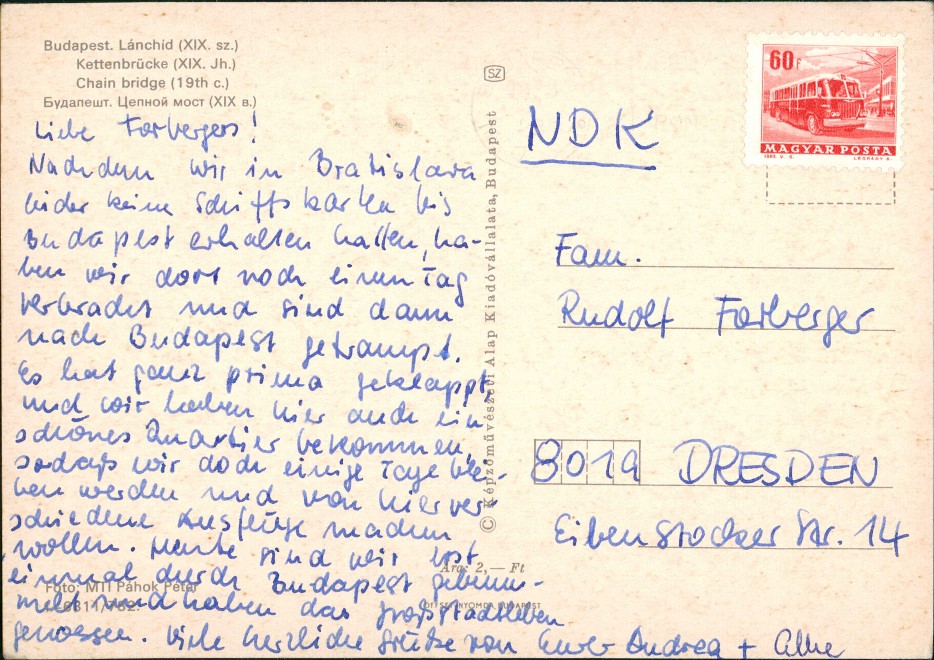 Budapest. Lánchíd (XIX. sz.)
Kettenbrücke (XIX. Jh.)
Chain bridge (19th c.)
Будапешт. Цепной мост (XIX в.)
Liebe Forbergers!
Nachdem wir in Bratislava
leider keine Schiffskarten bis
Budapest erhalten hatten, ha-
ben wir dort noch einen Tag
verbracht und sind dann
nach Budapest getrampt.
Es hat ganz prima geklappt,
und wir haben hier auch ein
schönes Quartier bekommen,
sodaß wir doch einige Tage blei-
ben werden und von hier ver-
schiedene Ausflüge machen
wollen. Heute sind wir erst
einmal durch Budapest gebum-
melt und haben das Großstadtleben
genossen. Viele herzliche Grüße von Eurer Andrea +
Foto: MTI Páhok Péter
Ára: 2,— Ft
OFFSETNYOMDA BUDAPEST
SZ
© Képzőművészeti Alap Kiadóvállalata, Budapest
60 f
MAGYAR POSTA
LÉGRÁDY S.
NDK
Fam.
Rudolf Forberger
8019 DRESDEN
Eibenstocker Str. 14